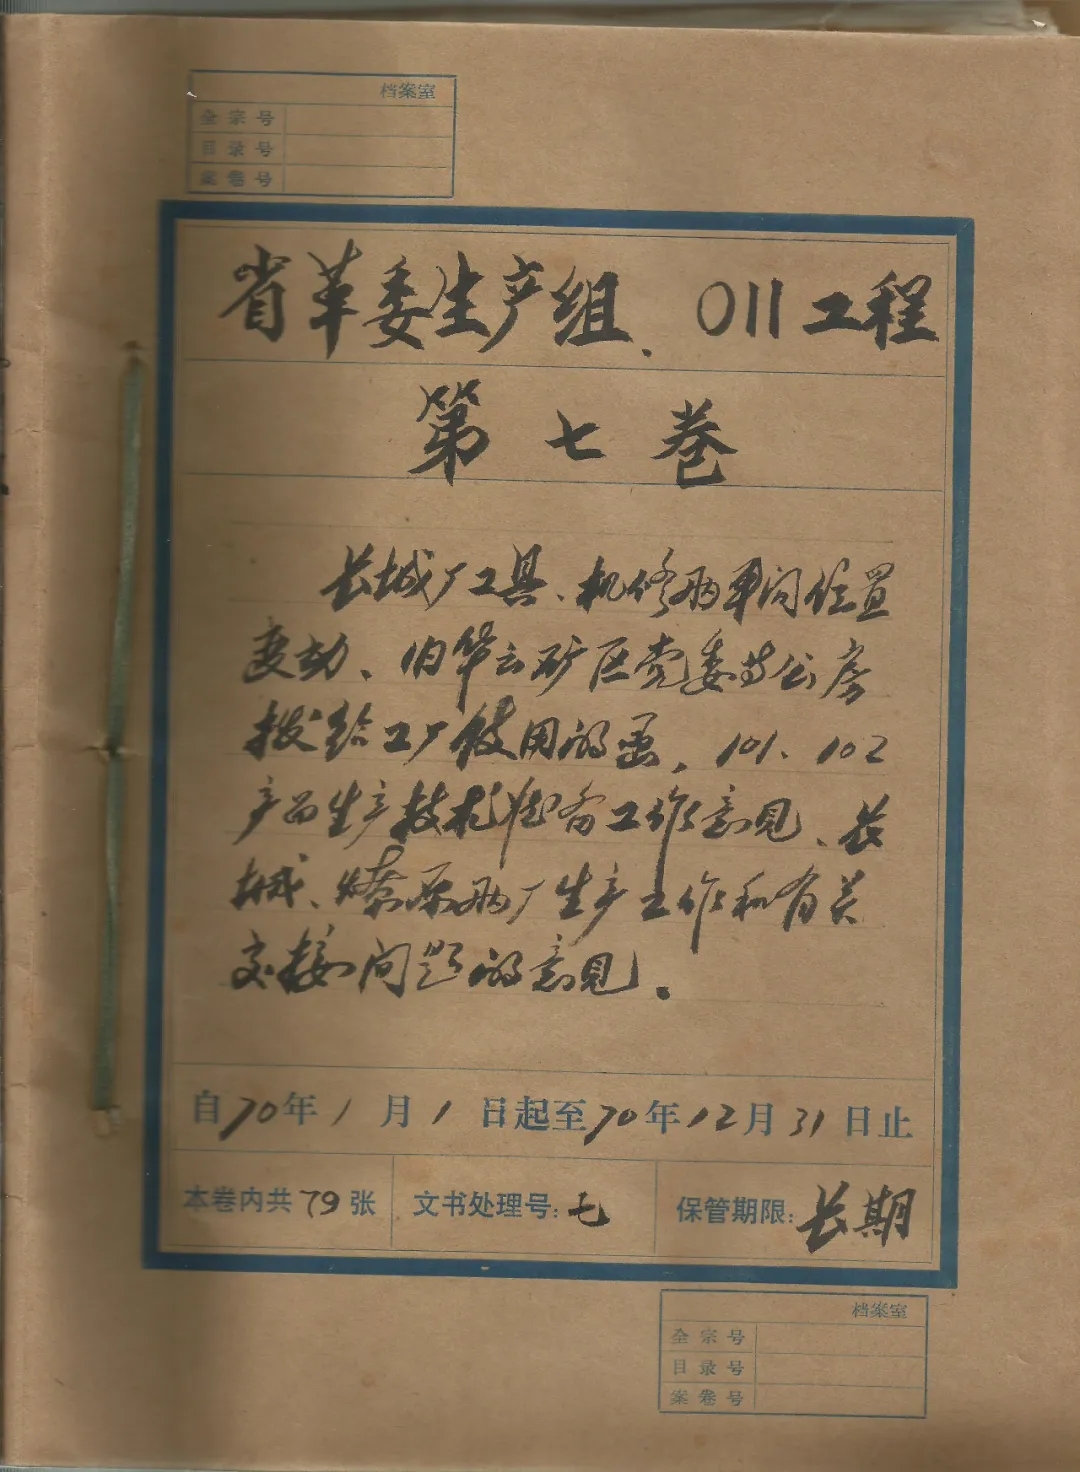 档案室
全宗号
目录号
案卷号
省革委生产组、011工程
第七卷
长城厂工具、机修两车间位置
变动、旧华云矿区党委等公房
拨给工厂使用的函,101、102
产品生产技术准备工作意见、长
城、燎原两厂生产工作和有关
交接问题的意见。
自70年1月1日起至70年12月31日止
本卷内共79张 文书处理号:七 保管期限:长期
档案室
全宗号
目录号
案卷号